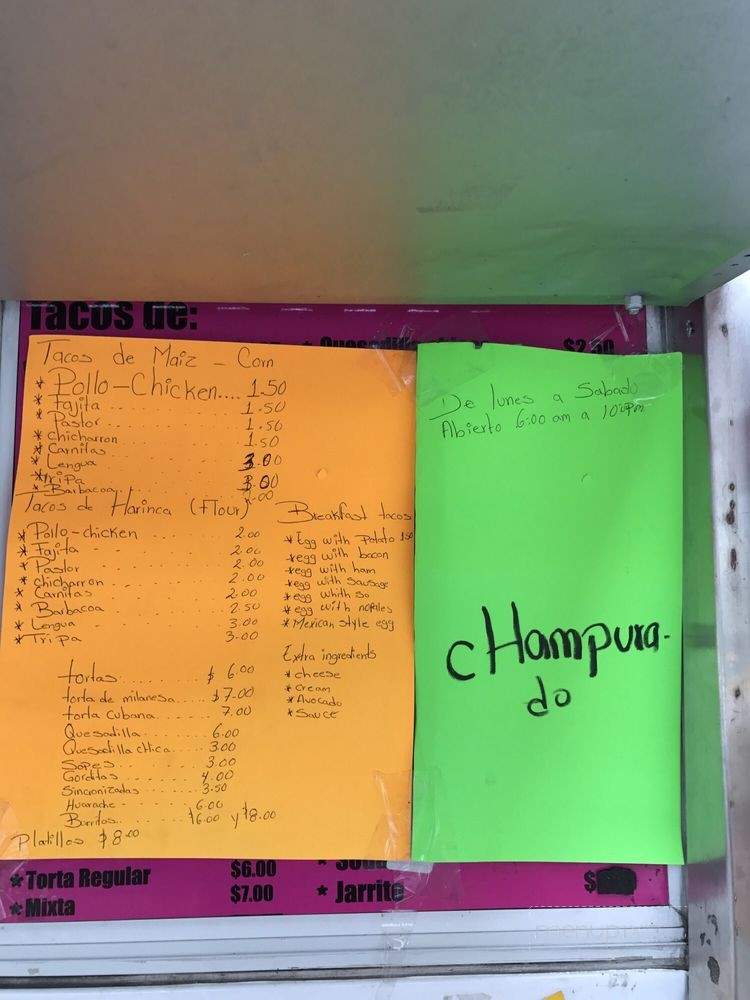 Tacos de:
$2.50
Tacos de Maiz - Corn
* Pollo-Chicken.... 1.50
* Fajita ........ 1.50
* Pastor ........ 1.50
* chicharron 1.50
* Carnitas
* Lengua 3.00
* Tripa 3.00
* Barbacoa
Tacos de Harinca (Flour)
* Pollo-chicken 2.00
* Fajita 2.00
* Pastor 2.00
* chicharron 2.00
* Carnitas 2.00
* Barbacoa 2.50
* Lengua 3.00
* Tripa 3.00
Breakfast tacos
* Egg with Potato 1.50
* egg with bacon
* egg with ham
* egg with sausage
* egg whith so
* egg with nopales
* Mexican style egg
Extra ingredients
* cheese
* cream
* Avocado
* Sauce
tortas ........ $ 6.00
torta de milanesa..... $7.00
torta Cubana ........ 7.00
Quesadilla ........ 6.00
Quesadilla chica..... 3.00
Sopes ........ 3.00
Gorditas ........ 4.00
Sincronizadas ...... 3.50
Huarache ........ 6.00
Burritos ........ $6.00 y $8.00
Platillos $8.00
De lunes a Sabado
Abierto 6:00 am a
cHampura-
do
* Torta Regular $6.00
* Mixta $7.00
* Soda
* Jarrito $